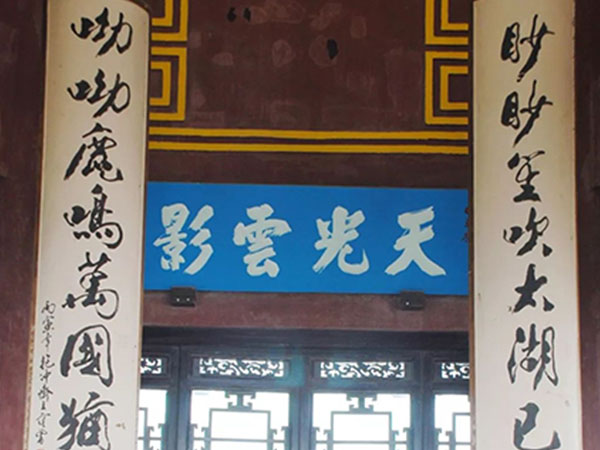 天光雲影
眇眇笙吹太湖已
呦呦鹿鳴萬國猶